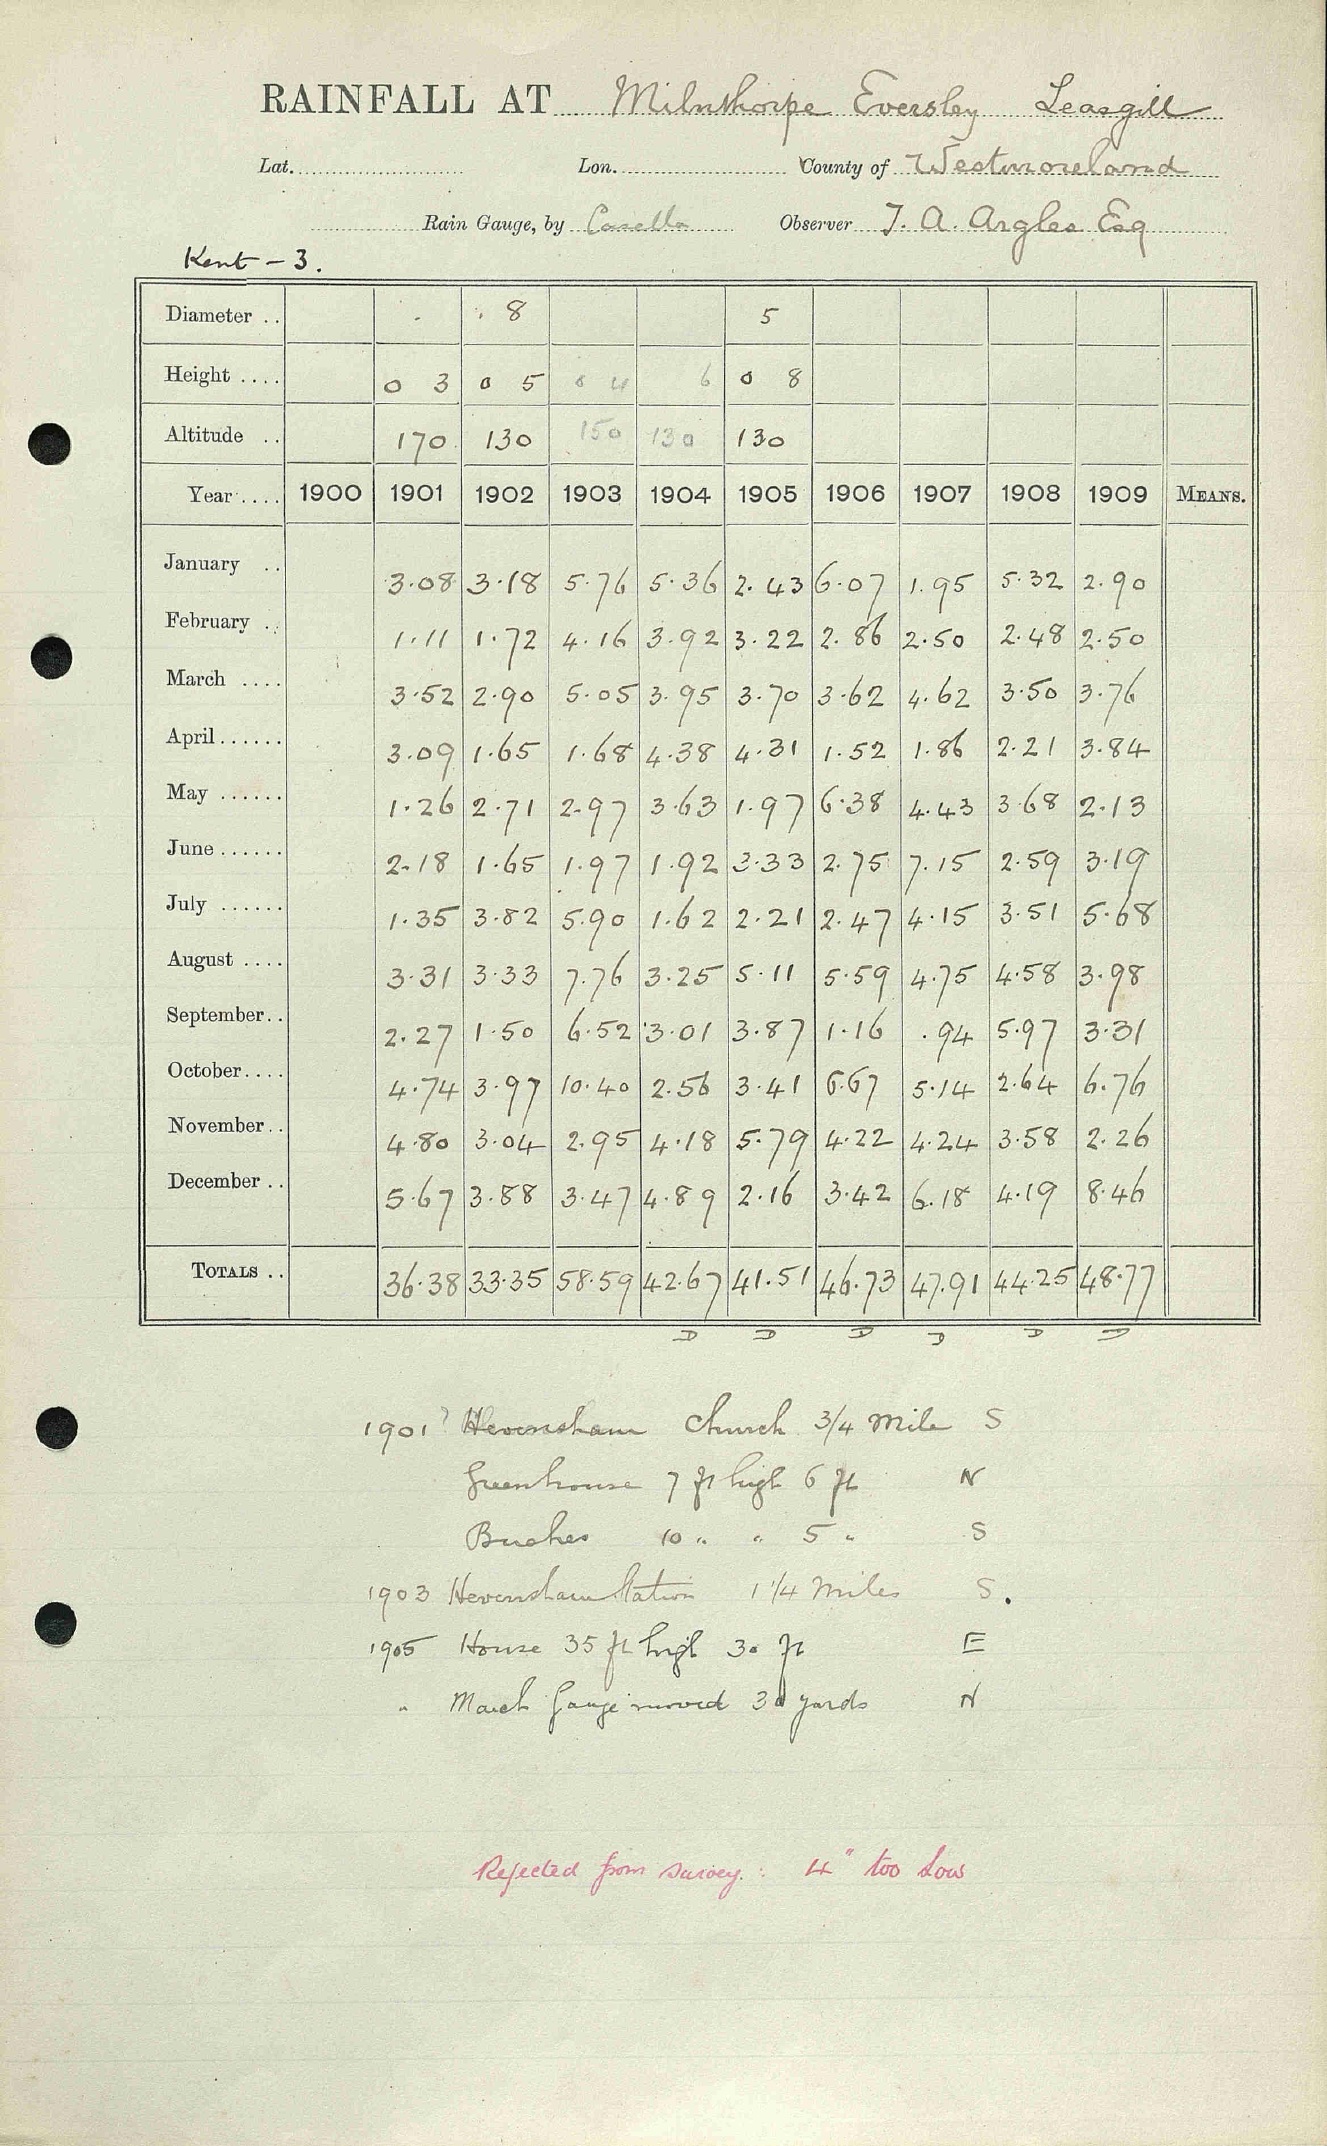 RAINFALL AT Milnthorpe Eversley Leasgill
Lat. Lon. County of Westmoreland
Rain Gauge, by Casella Observer T. A. Argles Esq
Kent - 3.
Diameter .. 8 5
Height .... 0 3 0 5 0 4 6 0 8
Altitude .. 170 130 150 130 130
Year .... 1900 1901 1902 1903 1904 1905 1906 1907 1908 1909 MEANS.
January .. 3.08 3.18 5.76 5.36 2.43 6.07 1.95 5.32 2.90
February .. 1.11 1.72 4.16 3.92 3.22 2.86 2.50 2.48 2.50
March .... 3.52 2.90 5.05 3.95 3.70 3.62 4.62 3.50 3.76
April ...... 3.09 1.65 1.68 4.38 4.31 1.52 1.86 2.21 3.84
May ...... 1.26 2.71 2.97 3.63 1.97 6.38 4.43 3.68 2.13
June ...... 2.18 1.65 1.97 1.92 3.33 2.75 7.15 2.59 3.19
July ...... 1.35 3.82 5.90 1.62 2.21 2.47 4.15 3.51 5.68
August .... 3.31 3.33 7.76 3.25 5.11 5.59 4.75 4.58 3.98
September .. 2.27 1.50 6.52 3.01 3.87 1.16 .94 5.97 3.31
October .... 4.74 3.97 10.40 2.56 3.41 6.67 5.14 2.64 6.76
November .. 4.80 3.04 2.95 4.18 5.79 4.22 4.24 3.58 2.26
December .. 5.67 3.88 3.47 4.89 2.16 3.42 6.18 4.19 8.46
TOTALS .. 36.38 33.35 58.59 42.67 41.51 46.73 47.91 44.25 48.77
D D D D D D
1901? Heversham Church 3/4 mile S
Greenhouse 7 ft high 6 ft N
Bushes 10 " " 5 " S
1903 Heversham Station 1 1/4 Miles S.
1905 House 35 ft high 30 ft E
" March Gauge moved 30 yards N
Rejected from survey : 4" too low